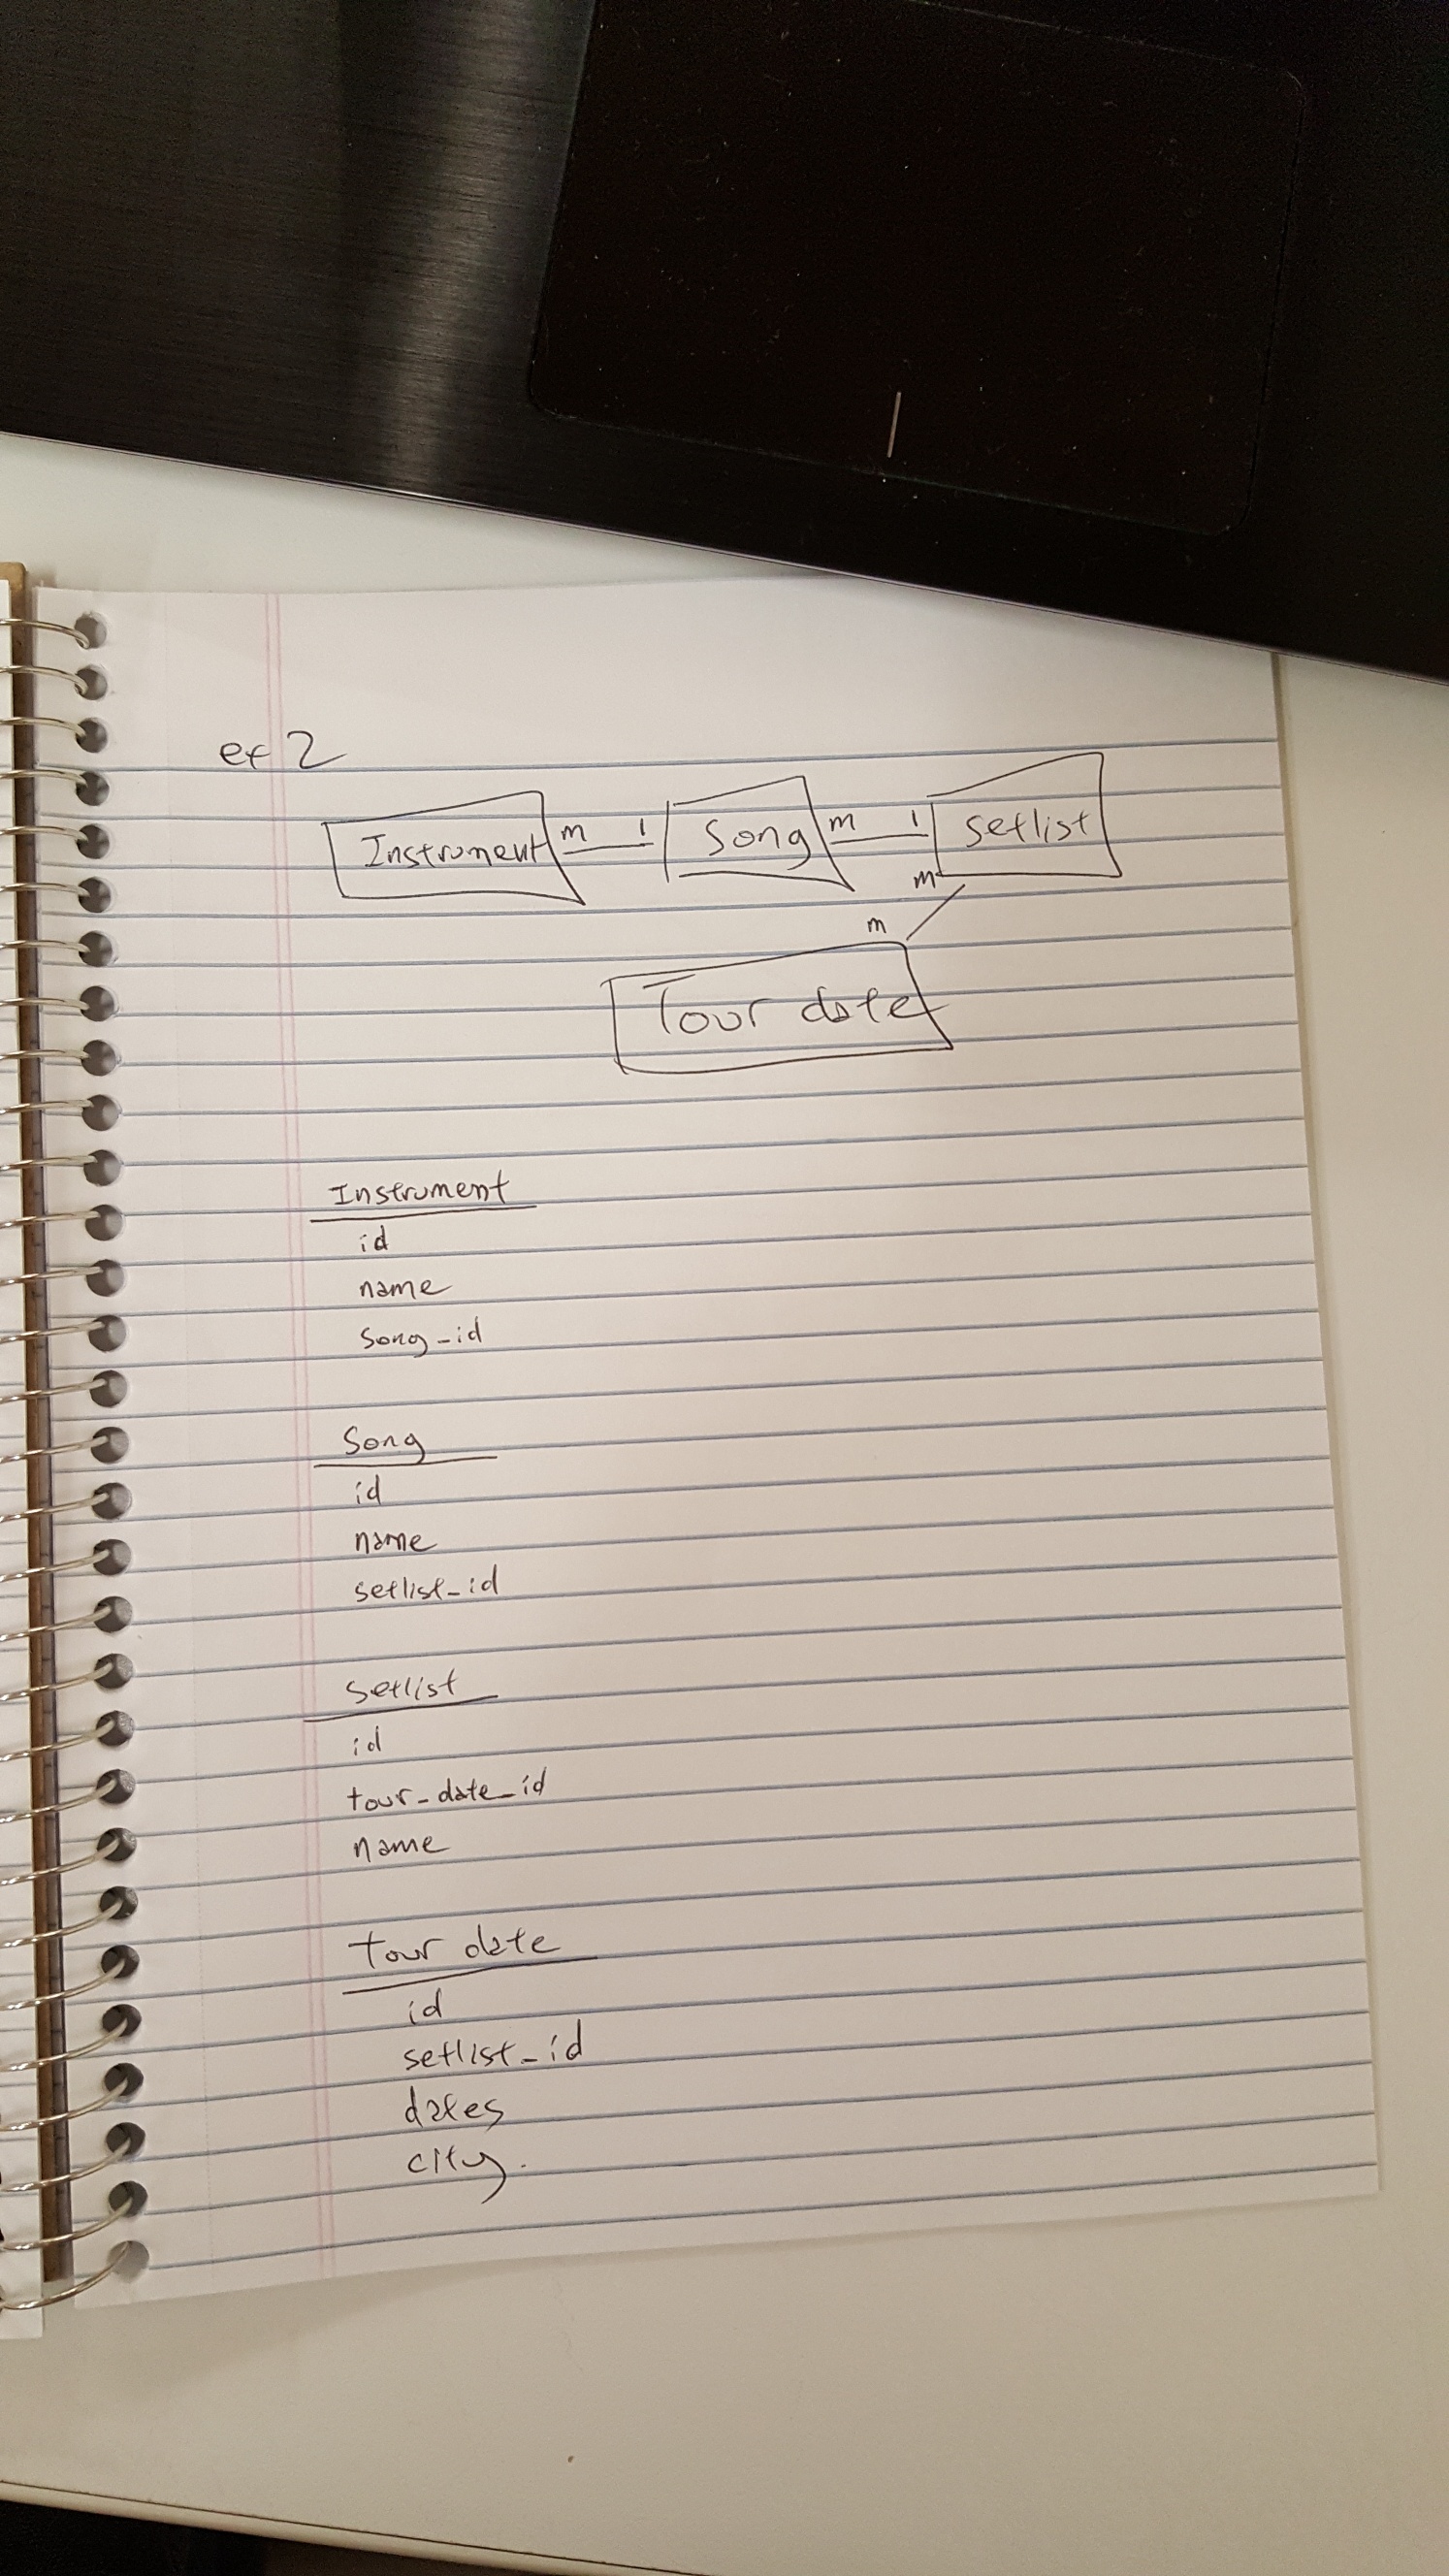 ex 2
Instrument m 1 Song m 1 setlist
m
m
Tour date
Instrument
id
name
song_id
Song
id
name
setlist_id
setlist
id
tour_date_id
name
Tour date
id
setlist_id
dates
city.